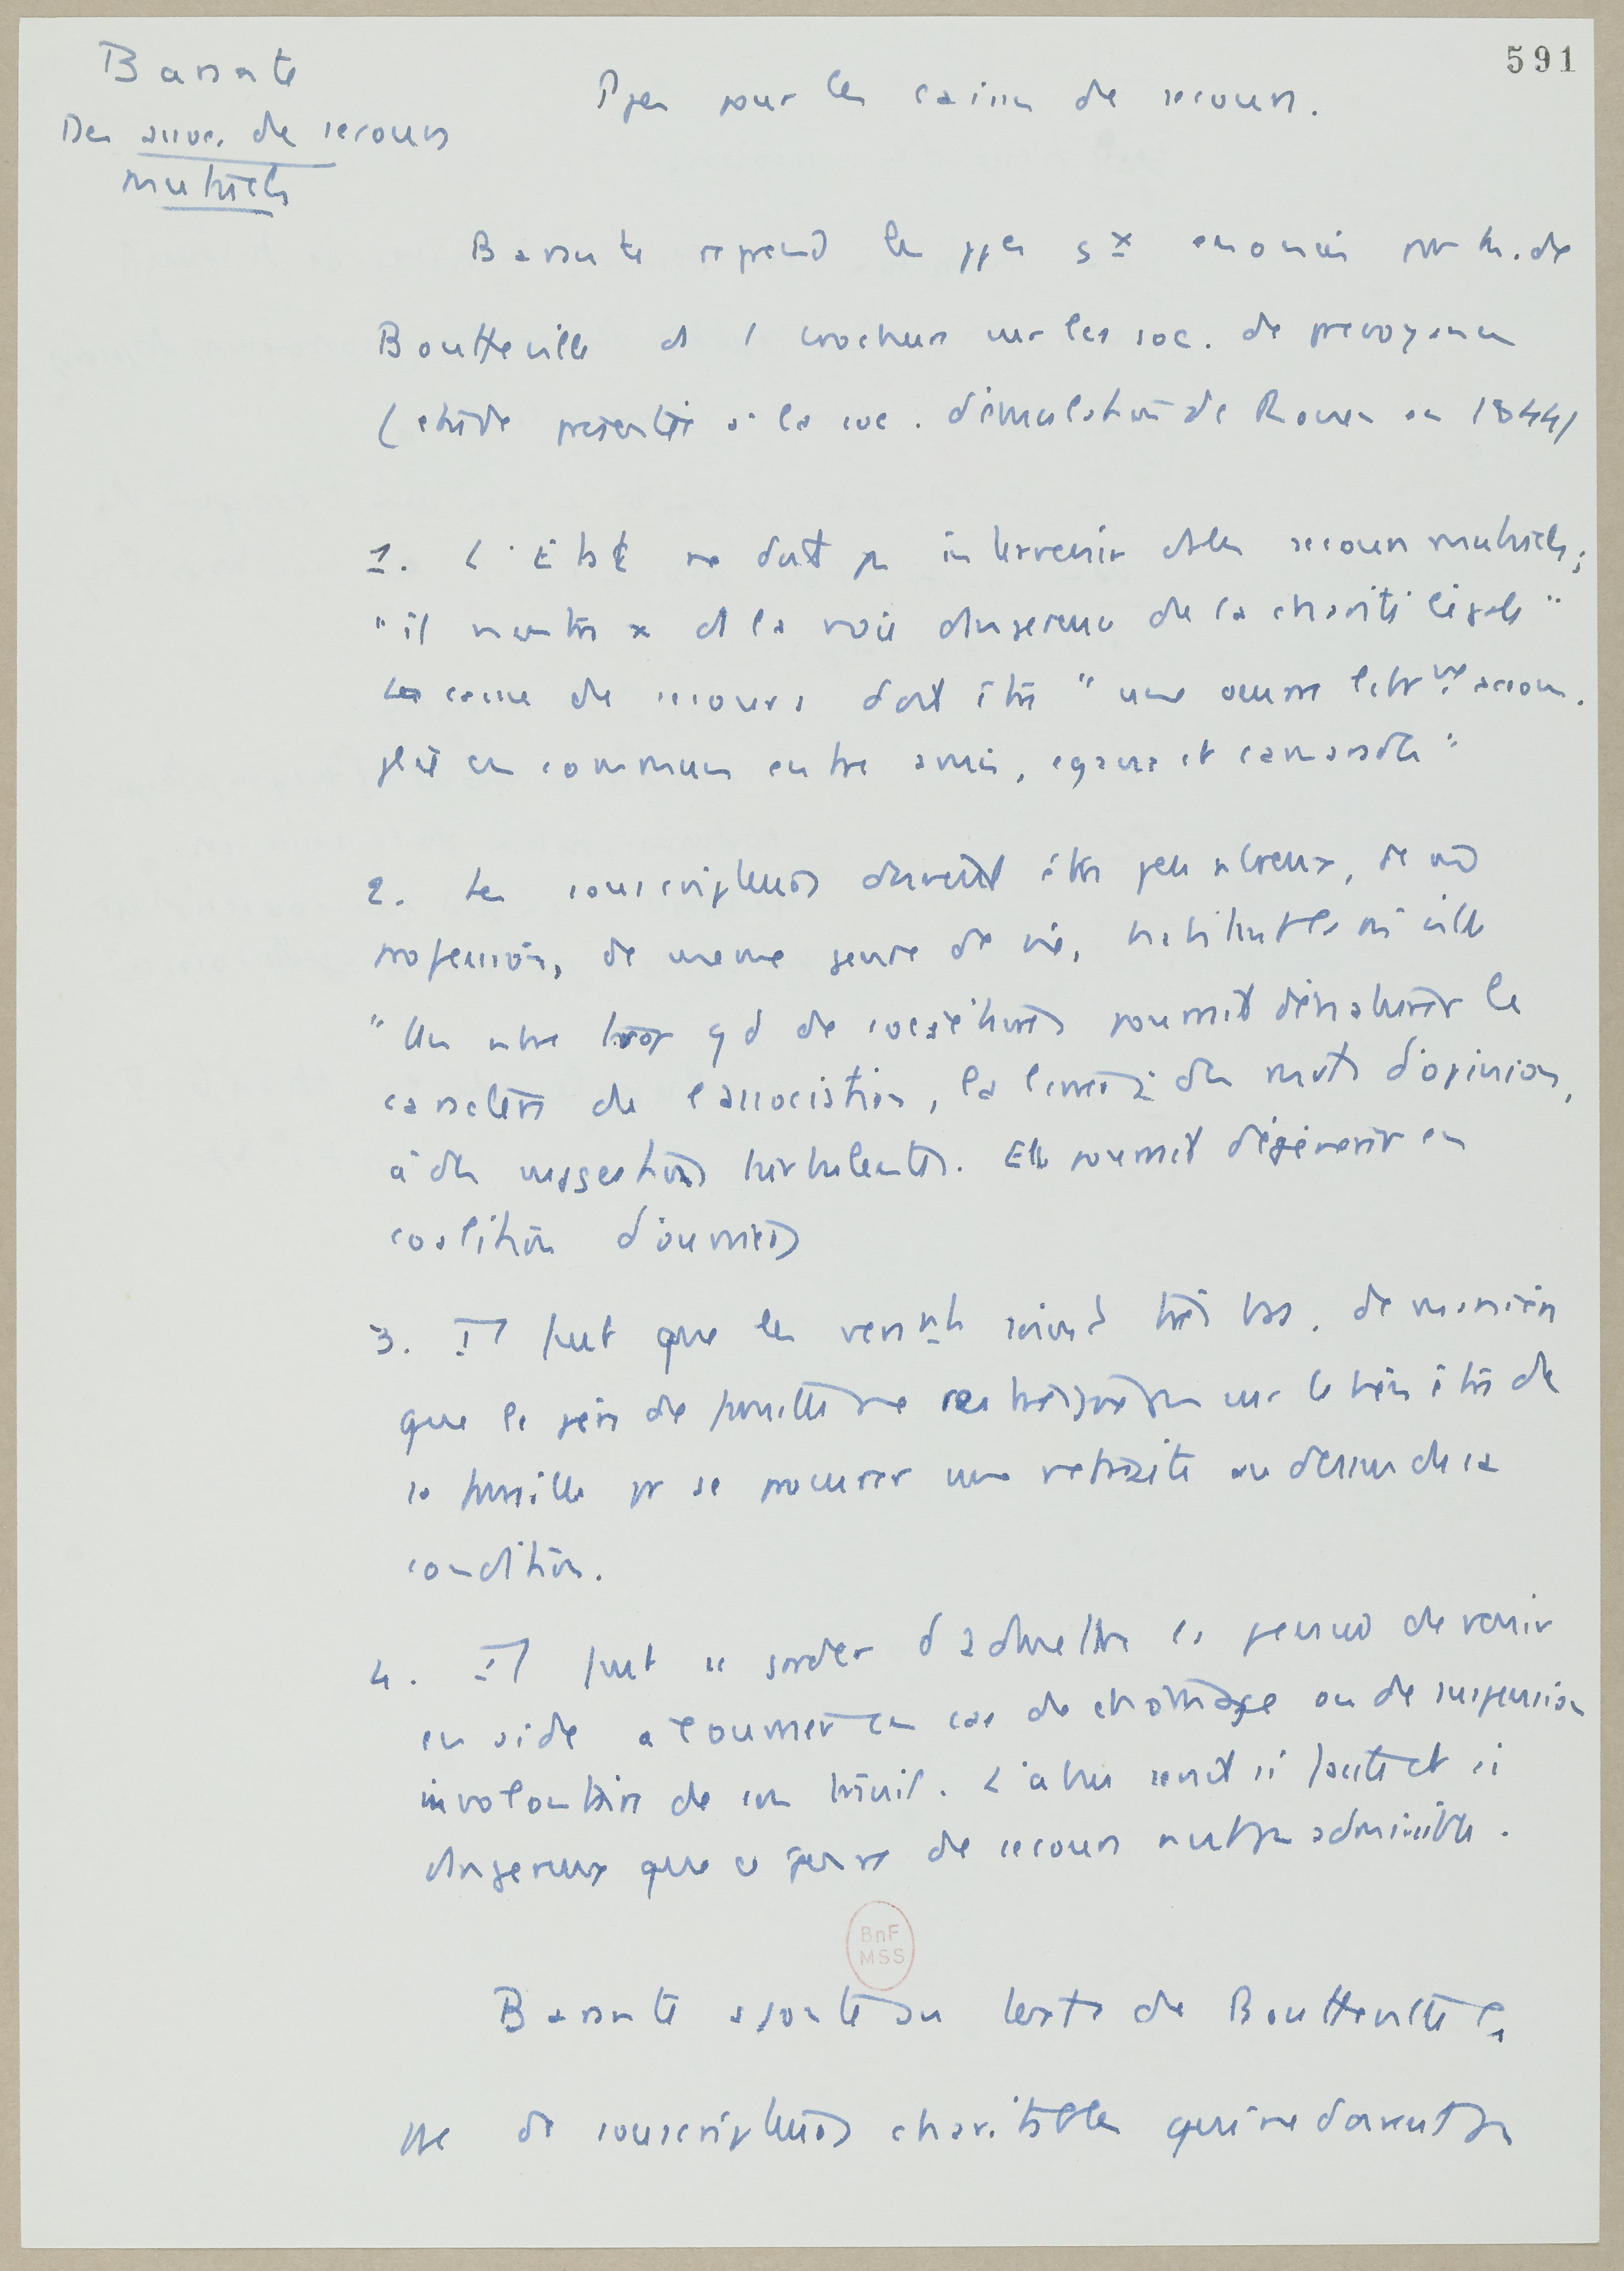 591
Barante
Des assoc. de secours
mutuels
Ppes pour les caisses de secours.
Barante reprend les ppes gx énoncés par M. de
Boutteville ds 1 brochure sur les soc. de prévoyance
(étude présentée à la soc. d'émulation de Rouen en 1844)
1. L'Etat ne doit pas intervenir ds les secours mutuels;
"il rentre ds la voie dangereuse de la charité légale"
La caisse de secours doit être "une œuvre accom-
plie en commun entre amis, égaux et camarades"
2. Les souscripteurs doivent être peu nbreux, de
profession, de même genre de vie, habitant la ville
"Un nbre trop gd de sociétaires pourrait dénaturer le
caractère de l'association, la livrer à des d'opinion,
à des suggestions turbulentes. Elle pourrait dégénérer en
coalition d'ouvriers
3. Il faut que les versnts soient très bas, de manière
que le père de famille ne pas sur le bien être de
sa famille pr se procurer une retraite au dessus de sa
condition.
4. Il faut se garder d'admettre la pension de venir
en aide à l'ouvrier en cas de chômage ou de suspension
involontaire de son travail. L'abus serait si facile et si
dangereux que ce genre de secours n'est pas admissible.
BnF
MSS
Barante ajoute au texte de Boutteville
de souscripteurs charitables qui ne doivent pas